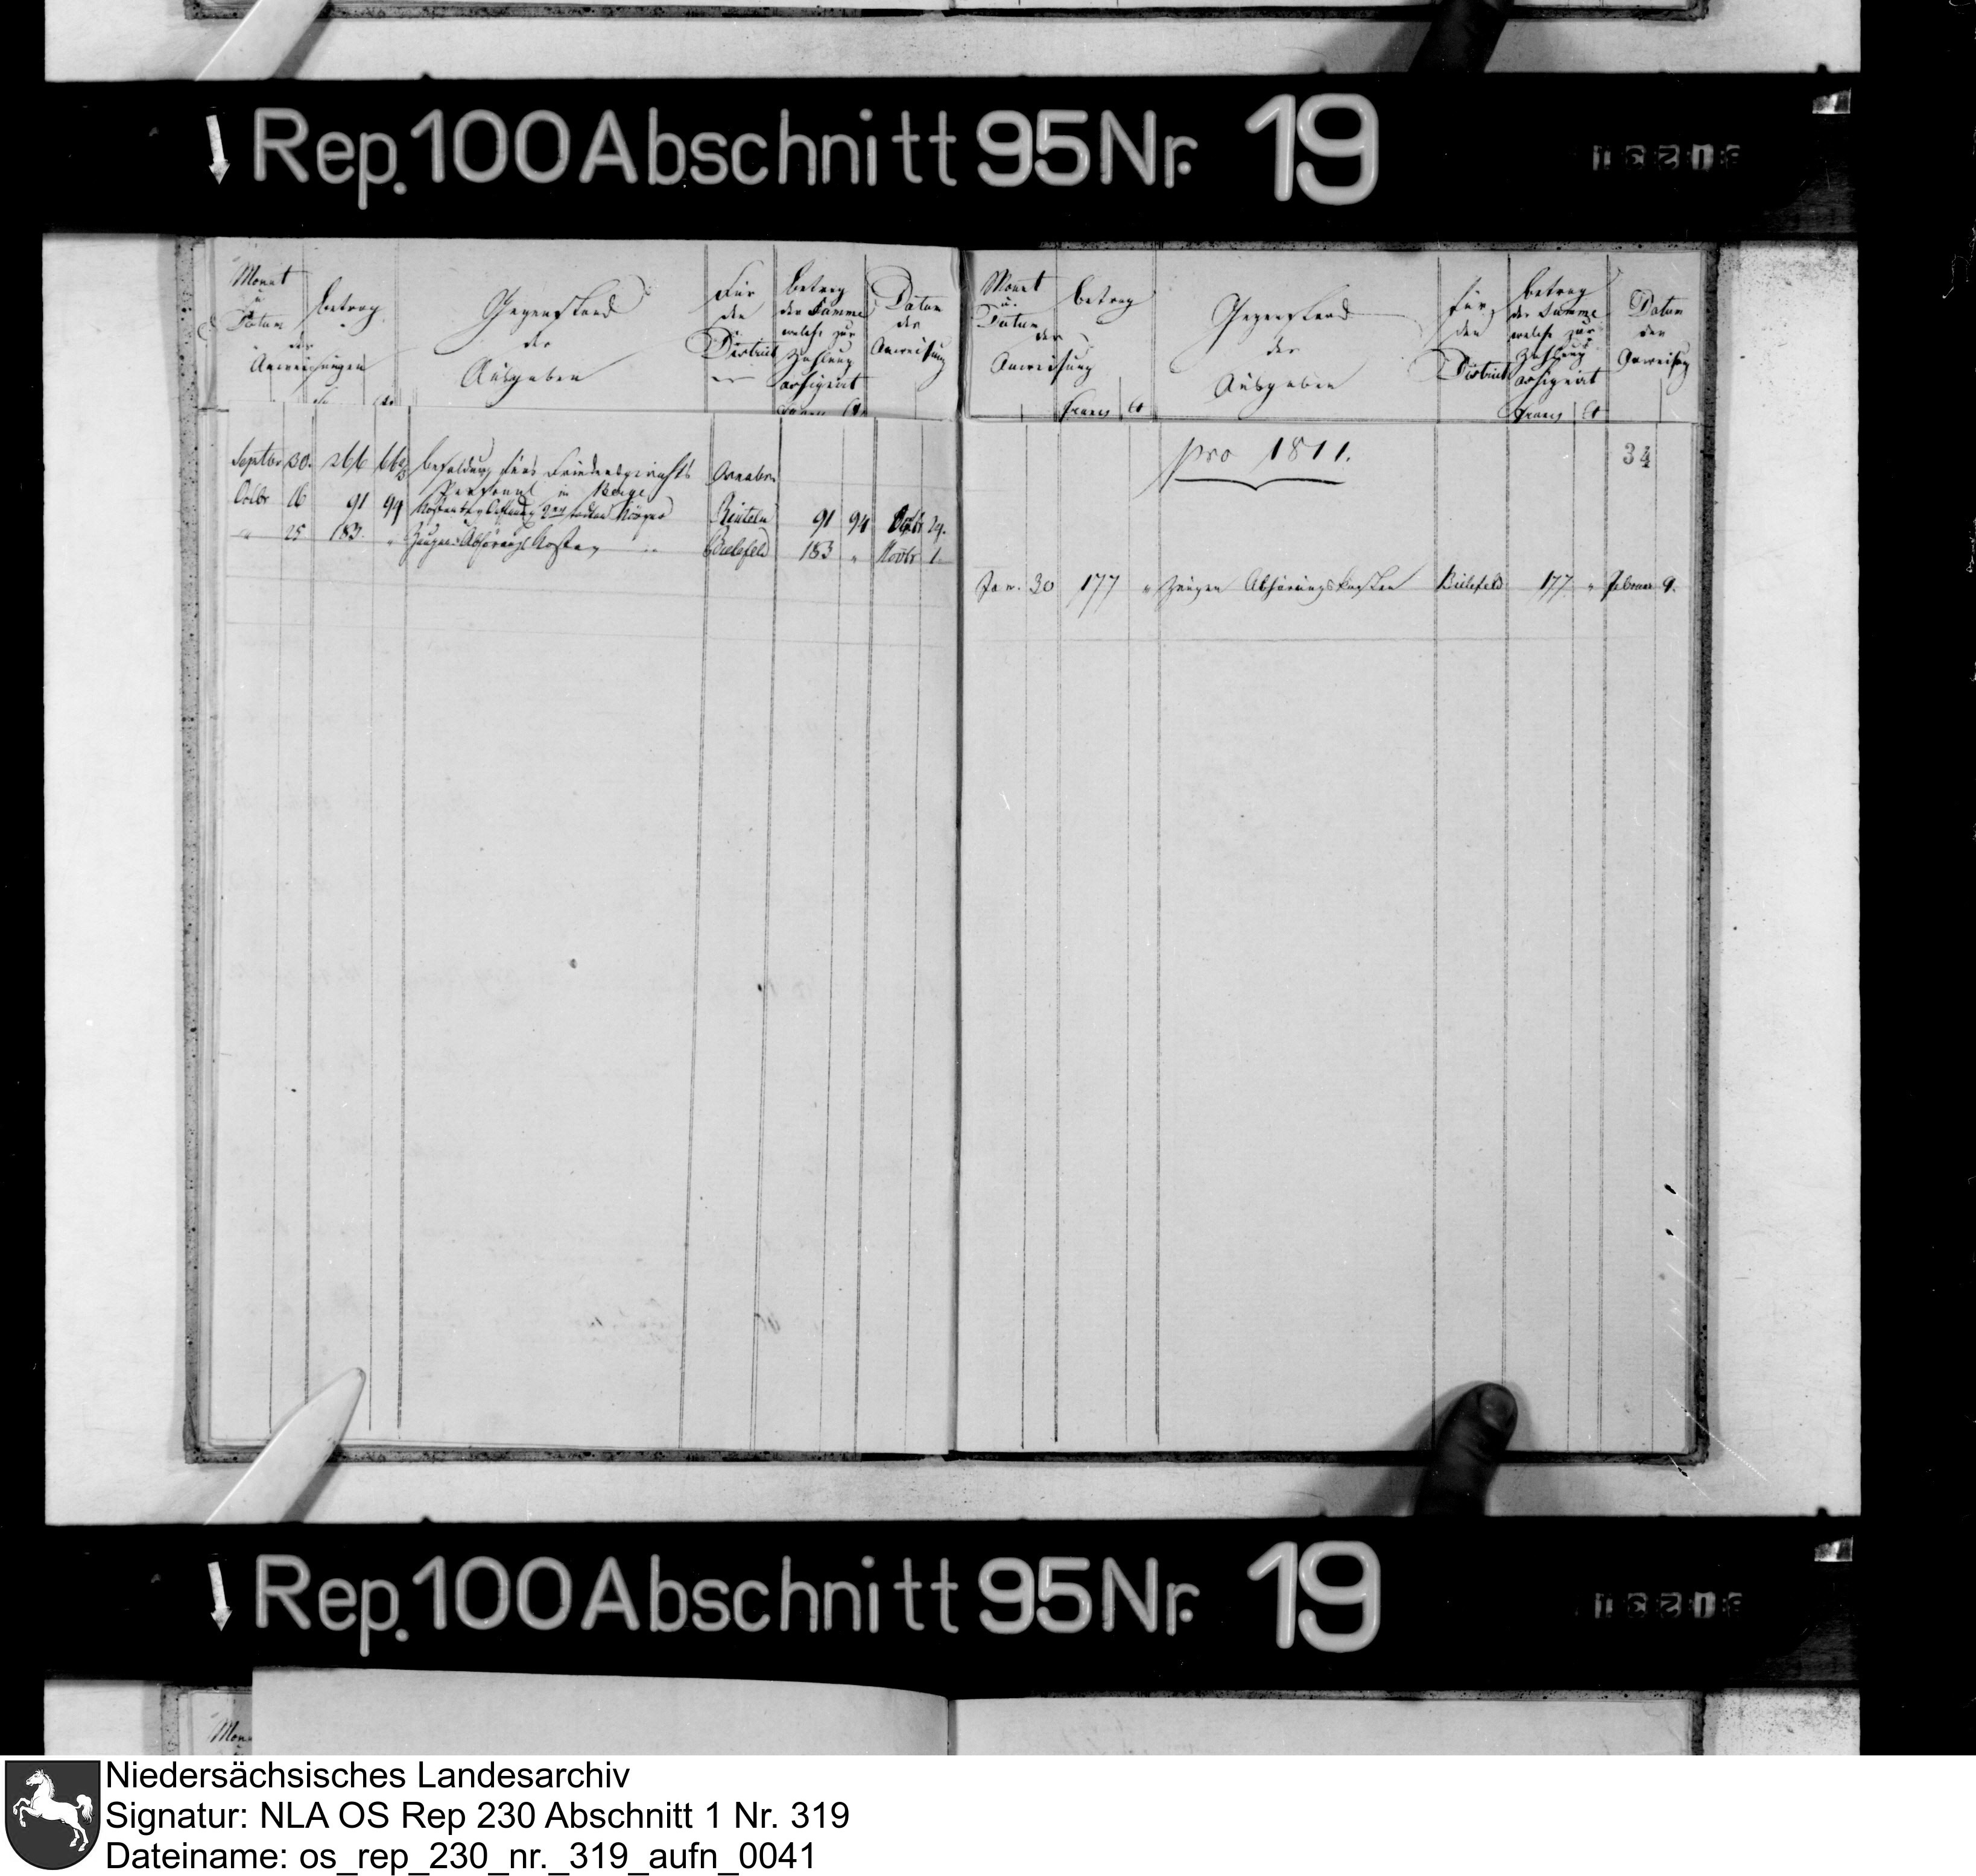 Rep. 100 Abschnitt 95 Nr. 19
Monat
u
Datum
der
Anweisungen
Betrag
Gegenstand
der
Ausgaben
Für
den
District
Betrag
der Summe
welche zur
Zahlung
assignirt
Datum
der
Anweisung
Septbr 30. 266 66⅔ Besoldung fürs Friedensgerichts
Personal in Berge
Osnabr.
Octbr 16 91 94 Kosten der Oeffnung todten Körper Rinteln 91 94 29.
" 25 183. " Zeugen Abhörungs Kosten Bielefeld 183 " Novbr 1.
Monat
u.
Datum
der
Anweisung
Betrag
Francs Ct
Gegenstand
der
Ausgaben
für
den
District
Betrag
der Summe
welche zur
Zahlung
assignirt
Francs Ct
Datum
der
Anweisung
pro 1811.
34
Jan. 30 177 " Zeugen Abhörungskosten Bielefeld 177 " Februar 9.
Rep. 100 Abschnitt 95 Nr. 19
Mon
Niedersächsisches Landesarchiv
Signatur: NLA OS Rep 230 Abschnitt 1 Nr. 319
Dateiname: os_rep_230_nr._319_aufn_0041